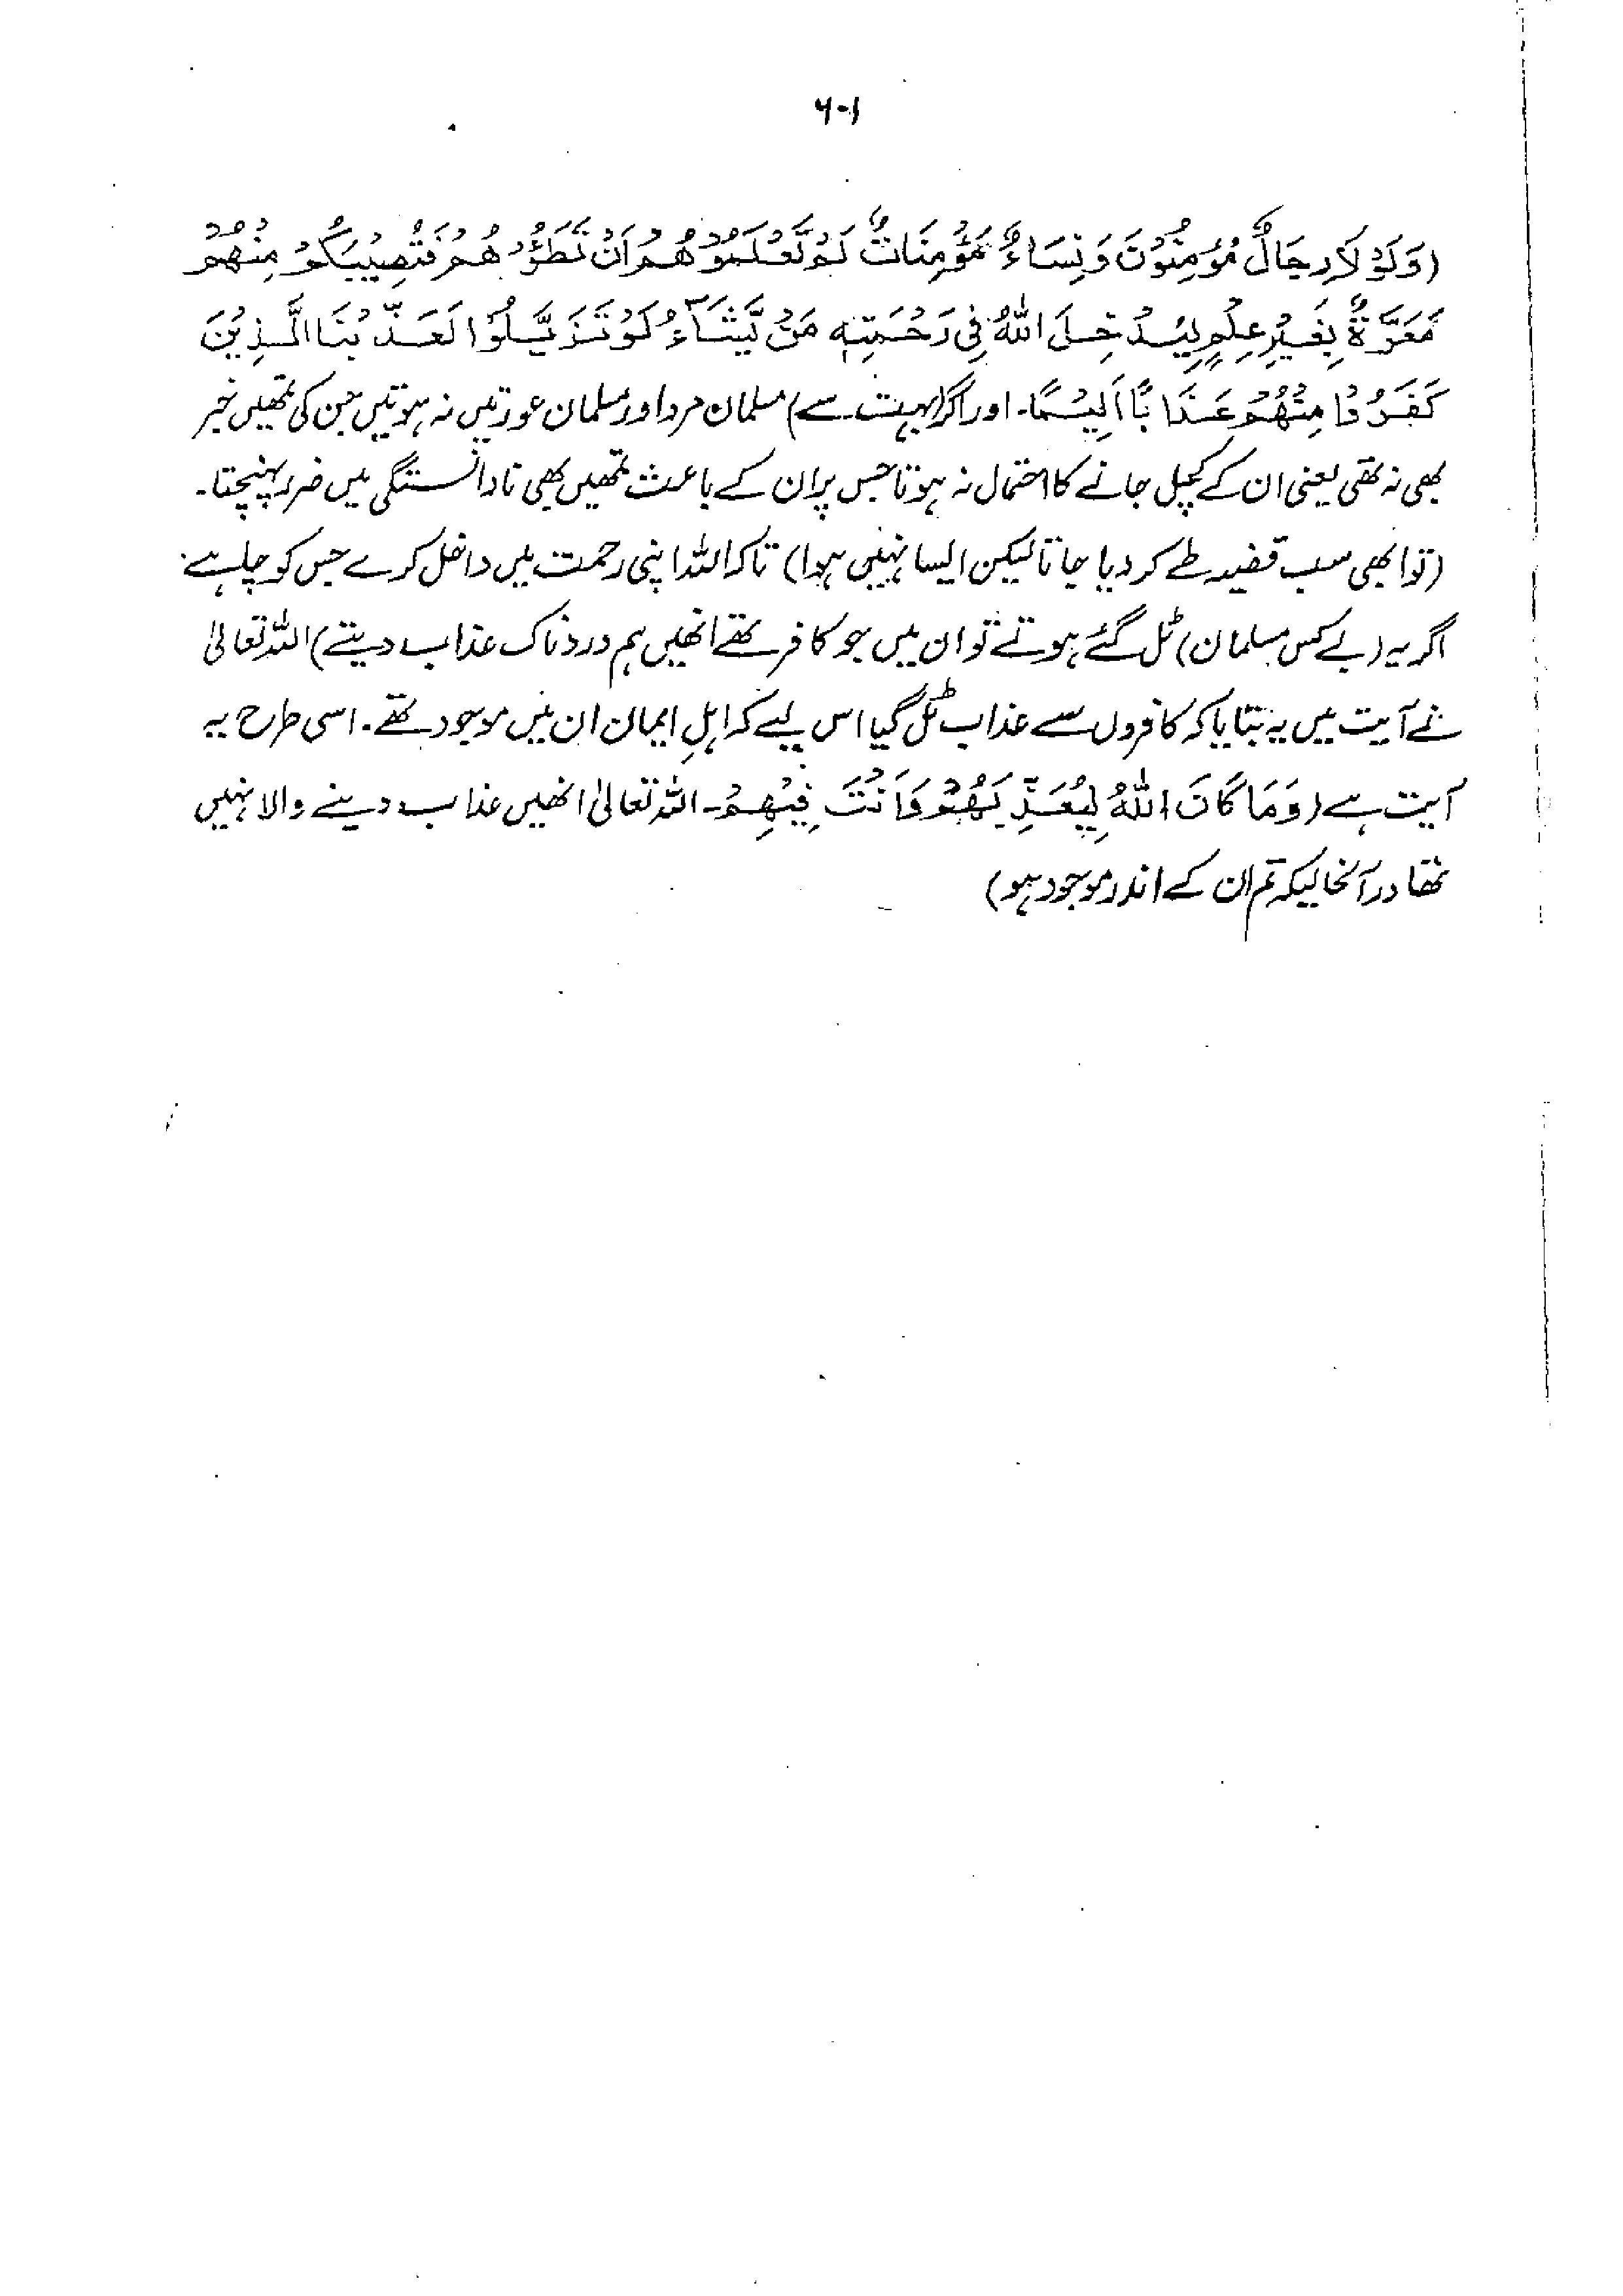 ۶۰۱
(وَلَوْ لَا رِجَالٌ مُؤْمِنُوْنَ وَنِسَاءٌ مُّؤْمِنَاتٌ لَمْ تَعْلَمُوْهُمْ اَنْ تَطَؤُوْهُمْ فَتُصِيْبَكُمْ مِنْهُمْ
مَعَرَّةٌ بِغَيْرِ عِلْمٍ لِيُدْخِلَ اللهُ فِیْ رَحْمَتِهٖ مَنْ يَّشَآءُ لَوْ تَزَيَّلُوْا لَعَذَّبْنَا الَّذِيْنَ
كَفَرُوْا مِنْهُمْ عَذَابًا اَلِيْمًا۔ اور اگر (بہت سے) مسلمان مرد اور مسلمان عورتیں نہ ہوتیں جن کی تمھیں خبر
بھی نہ تھی یعنی ان کے کچل جانے کا احتمال نہ ہوتا جس پر ان کے باعث تمھیں بھی نادانستگی میں ضرر پہنچتا۔
(تو ابھی سب قضیہ طے کر دیا جاتا لیکن ایسا نہیں ہوا) تاکہ اللہ اپنی رحمت میں داخل کرے جس کو چاہے۔
اگر یہ (بے کس مسلمان) ٹل گئے ہوتے تو ان میں جو کافر تھے انھیں ہم دردناک عذاب دیتے) اللہ تعالیٰ
نے آیت میں یہ بتایا کہ کافروں سے عذاب ٹل گیا اس لیے کہ اہلِ ایمان ان میں موجود تھے۔ اسی طرح یہ
آیت ہے (وَمَا كَانَ اللهُ لِيُعَذِّبَهُمْ وَاَنْتَ فِيْهِمْ۔ اللہ تعالیٰ انھیں عذاب دینے والا نہیں
تھا درآنحالیکہ تم ان کے اندر موجود ہو)